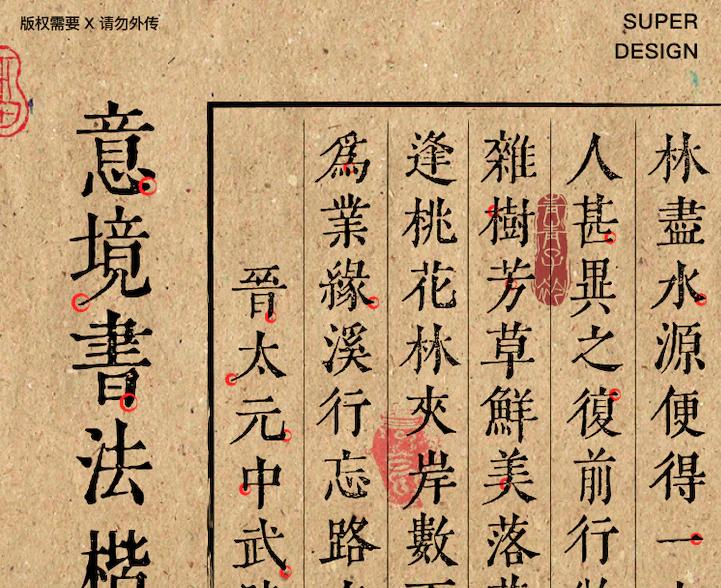 版权需要 X 请勿外传
SUPER
DESIGN
意境書法
晉太元中武
爲業緣溪行忘路
逢桃花林夾岸數
雜樹芳草鮮美落
人甚異之復前行
林盡水源便得一